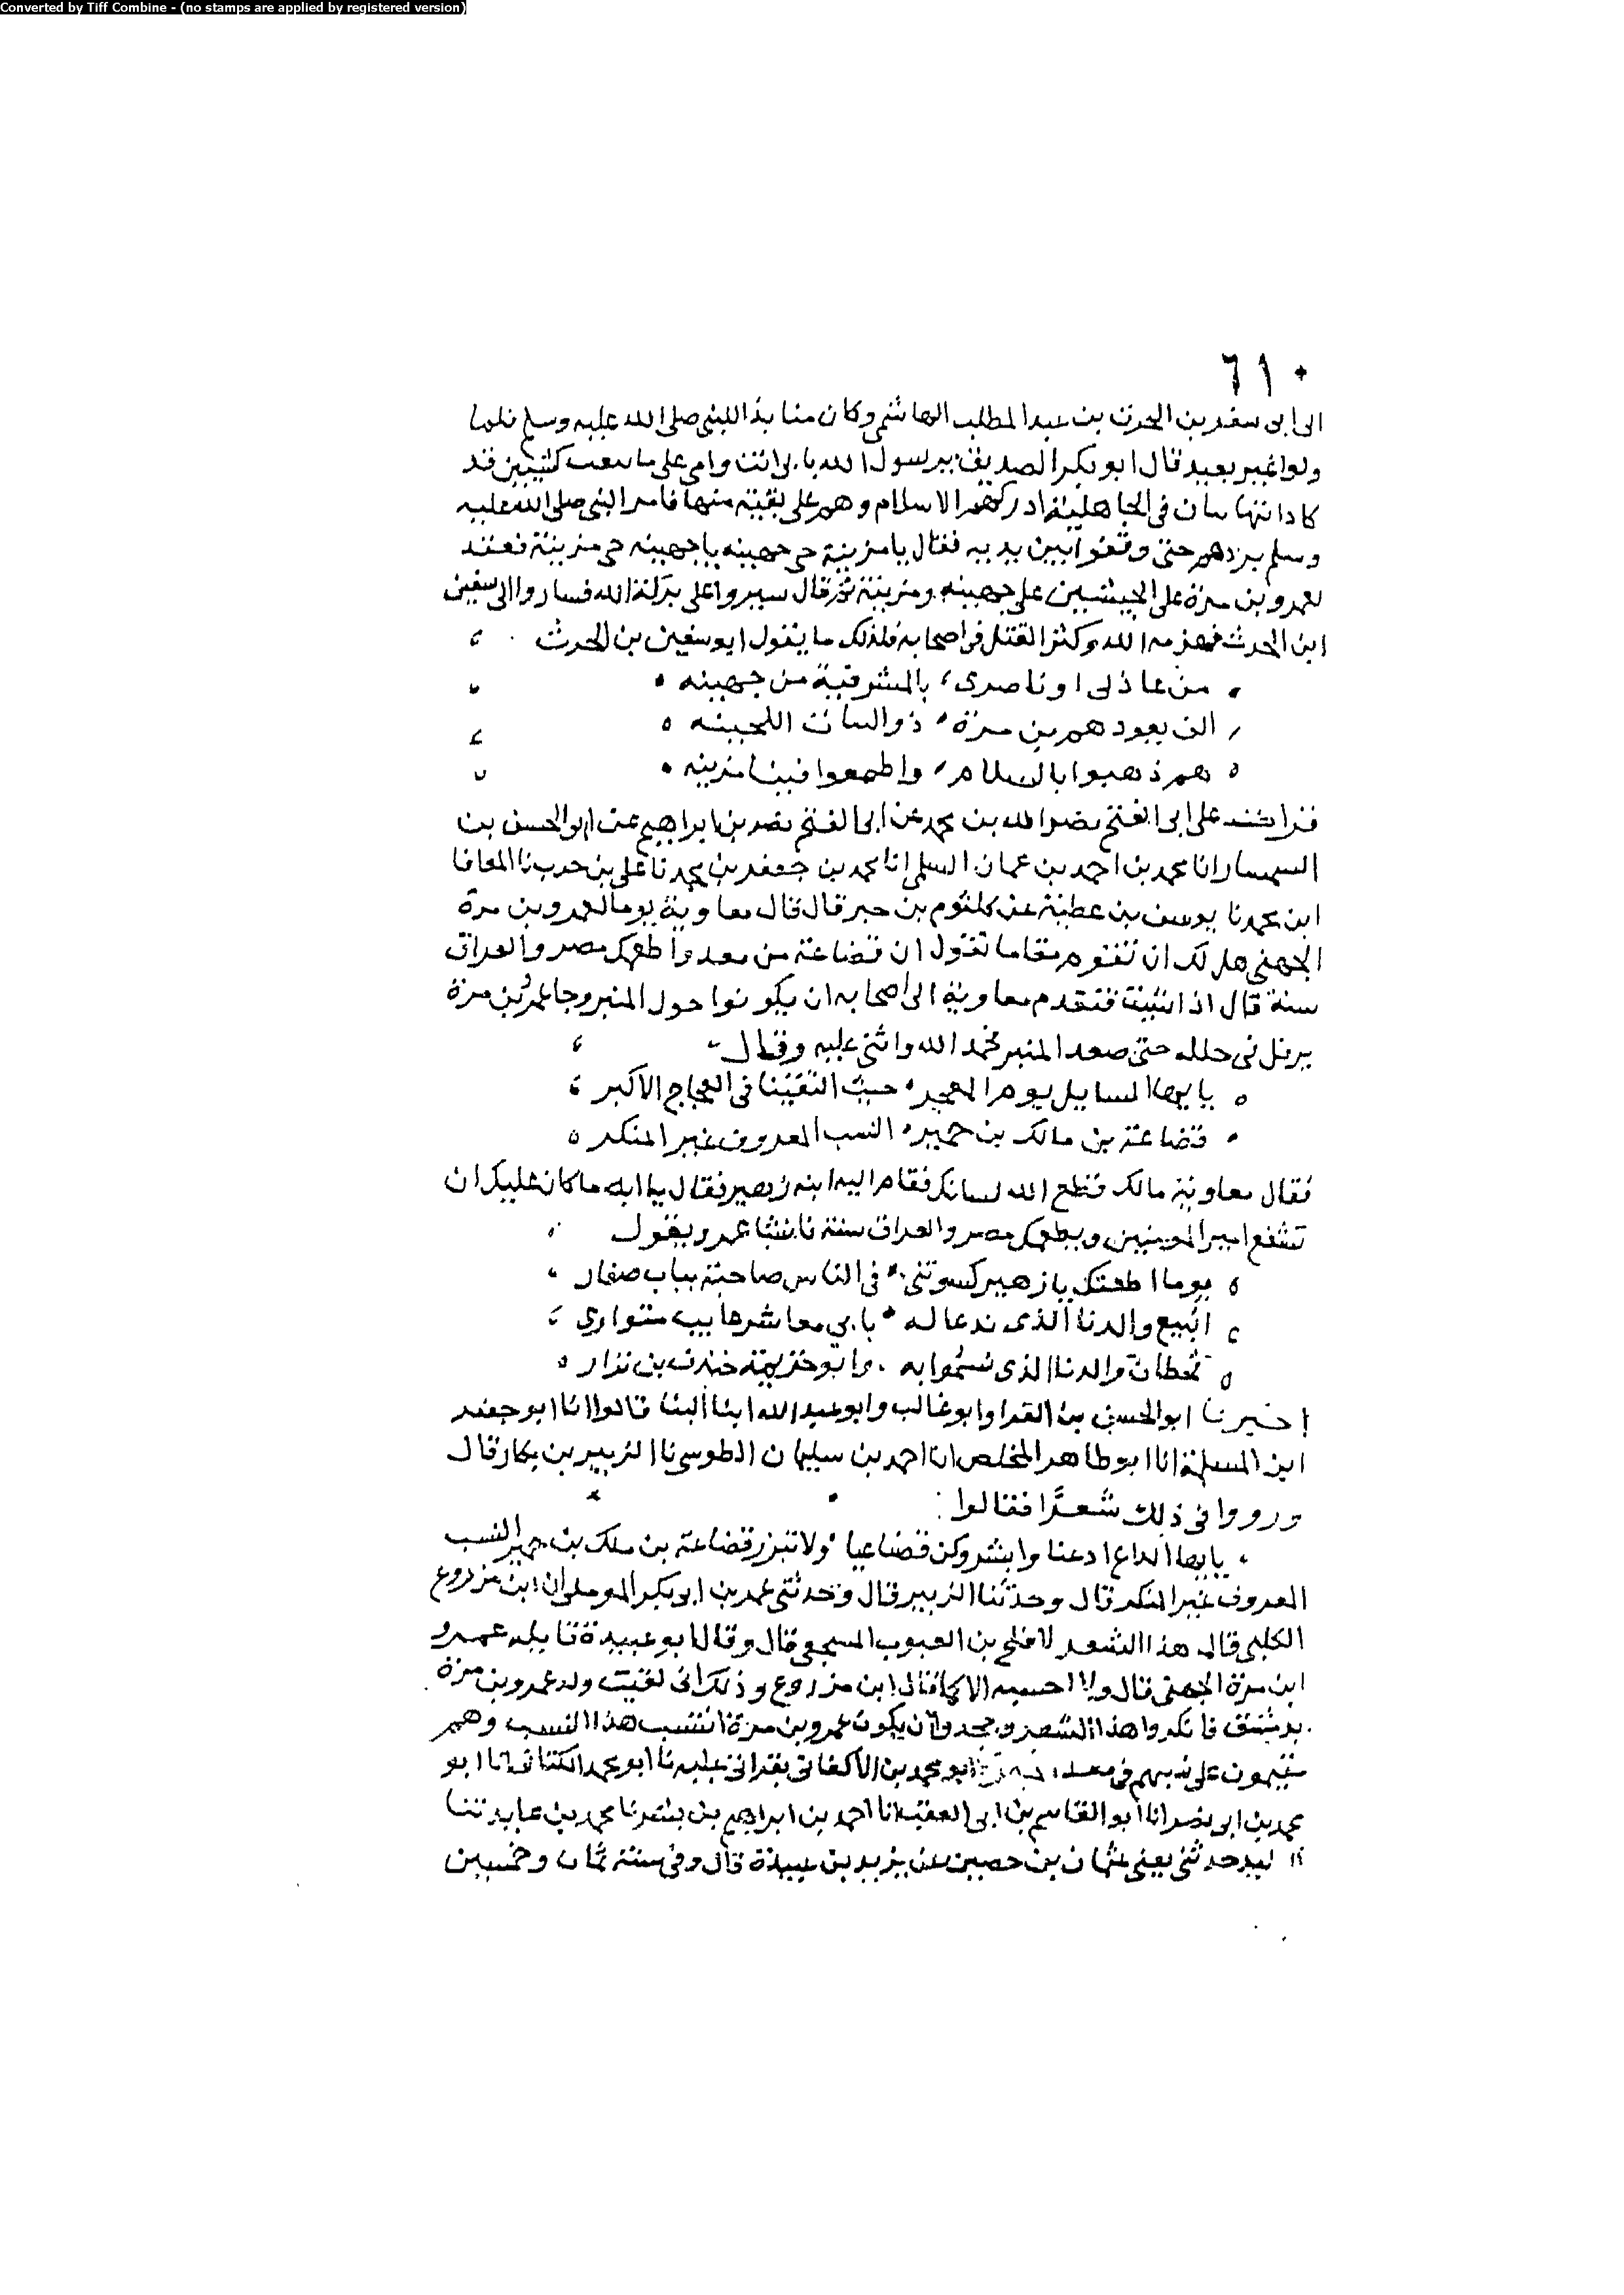 Converted by Tiff Combine - (no stamps are applied by registered version)
٦١٠
الى ابى سفين بن الحرث بن عبد المطلب الهاشمى وكان منابذا للنبى صلى الله عليه وسلم فلما
ولوا غير بعيد قال ابو بكر الصديق يرسول الله بابى انت وامى على ما بعثت كتيبتين قد
كادا يتهاسان فى الجاهلية ادركهم الاسلام وهم على بقية منها فامر النبى صلى الله عليه
وسلم بردهم حتى وقفوا بين يديه فقال يا مزينة حى جهينه يا جهينه حى مزينة فعقد
لعمرو بن مرة على الجيشين على جهينه ومزينة ثم قال سيروا على بركة الله فساروا الى سفين
ابن الحرث فهزمه الله وكثر القتل فى اصحابه فلذلك ما يقول ابو سفين بن الحرث
من عاذلى او ناصرى بالمشرفية من جهينه
الف يقودهم بن مرة ذو اللجينه
هم ذهبوا بالسلام واطمعوا فينا مزينه
قرات على ابى الفتح نصر الله بن محمد عن ابى الفتح نصر بن ابراهيم عن ابى الحسن بن
السمسار انا محمد بن احمد بن عمان السلمى انا محمد بن جعفر بن محمد نا على بن حرب نا المعافا
ابن محمد نا يوسف بن عطية عن كلثوم بن جبر قال قال معاوية يوما لعمرو بن مرة
الجهنى هل لك ان تقوم مقاما تقول ان قضاعة من معد واطعمك مصر والعراق
سنة قال اذا شيت فتقدم معاوية الى اصحابه ان يكونوا حول المنبر وجا عمرو بن مرة
يرفل فى حلله حتى صعد المنبر فحمد الله واثنى عليه وقال
يا يها السايل يوم المعجر حيث التقينا فى العجاج الاكبر
قضاعة بن مالك بن حمير النسب المعروف غير المنكر
فقال معاوية مالك قطع الله لسانك فقام اليه ابنه زهير فقال يا ابه ما كان عليك ان
تشفع امير المومنين ويطعمك مصر والعراق سنة فانشا عمرو يقول
يوما اطعتك يا زهير كسوتنى فى الناس ضاحية ثياب صغار
انبيع والدنا الذى ندعا له بابى معاشر غايب متوارى
قحطان والدنا الذى نسموا به وابو خزيمة خندف بن نزار
اخبرنا ابو الحسين بن الفرا وابو غالب وابو عبد الله ابنا البنا قالوا انا ابو جعفر
ابن المسلمة انا ابو طاهر المخلص انا احمد بن سليمان الطوسى نا الزبير بن بكار قال
ورووا فى ذلك شعرا فقالوا
يا يها الداع ادعنا وابشر وكن قضاعيا ولا تنزر قضاعة بن ملك بن حمير النسب
المعروف غير المنكر قال وحدثنا الزبير قال وحدثنى عمر بن ابى بكر الموصلى ان ابن مزروع
الكلبى قال هذا الشعر لافلح بن اليعبوب المسجعى قال وقال ابو عبيدة قايله عمرو
ابن مرة الجهنى قال ولا احسبه الا كما قال ابن مزروع وذلك انى لقيت ولد عمرو بن مرة
بدمشق فانكروا هذا الشعر وجحدوا ان يكون عمرو بن مرة انتسب هذا النسب وهم
مقيمون على نسبهم فى معد ابو محمد بن الاكفانى بقراتى عليه نا ابو محمد الكتانى انا ابو
محمد بن ابى نصر انا ابو القاسم بن ابى العقب انا احمد بن ابراهيم بن بشر نا محمد بن عايد ثنا
حدثنى يعنى عثمان بن حصين عن يزيد بن عبيدة قال وفى سنة ثمان وخمسين